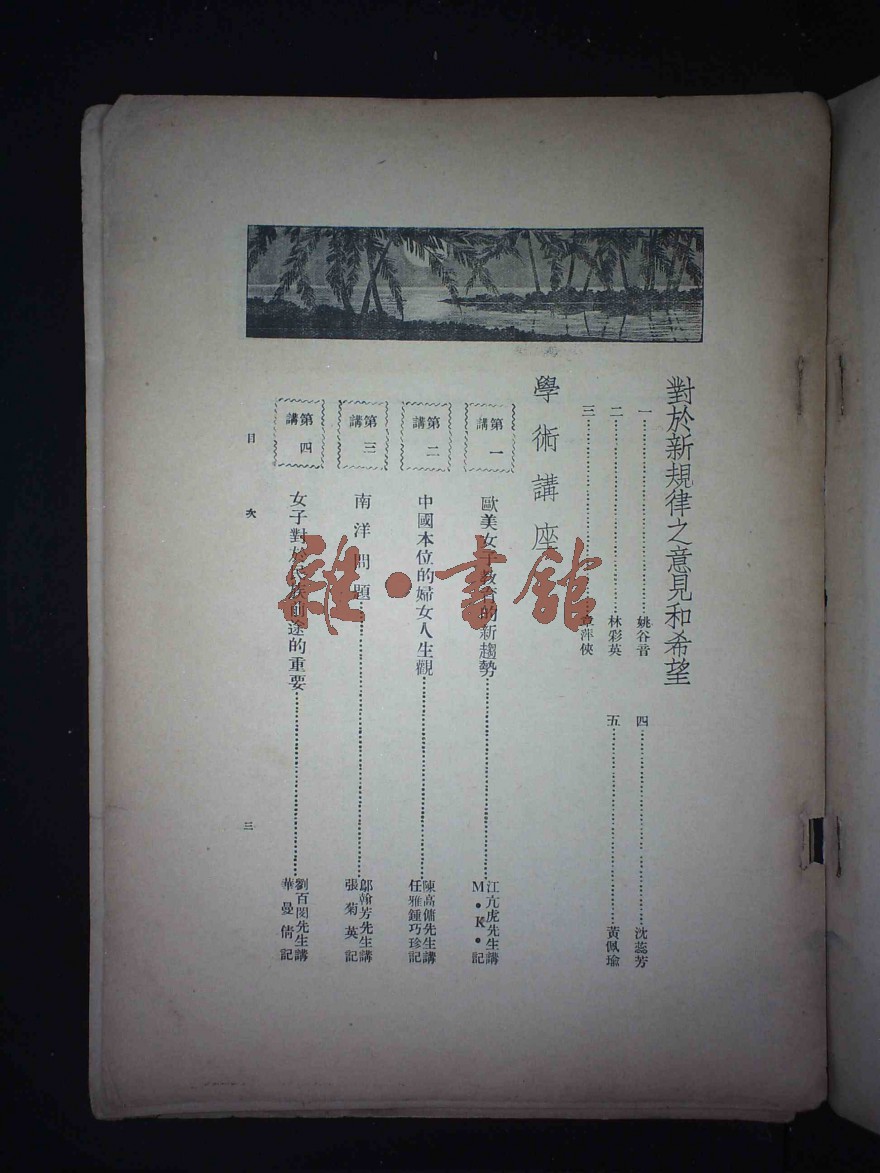 對於新規律之意見和希望
一 姚谷音
二 林彩英
三 章萍俠
四 沈蕊芳
五 黃佩瑜
學術講座
第一講 歐美女子教育的新趨勢 江亢虎先生講 M·K·記
第二講 中國本位的婦女人生觀 陳高傭先生講 任雅鍾巧珍記
第三講 南洋問題 鄔翰芳先生講 張菊英記
第四講 女子對於民族前途的重要 劉百閔先生講 華曼倩記
目次 三
雜·書館